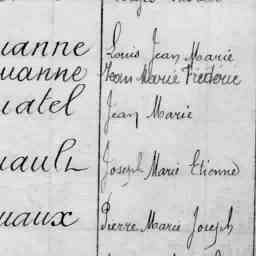 uanne Louis Jean Marie
uanne Jean Marie Frédéric
uatel Jean Marie
uault Joseph Marie Etienne
uaux Pierre Marie Joseph